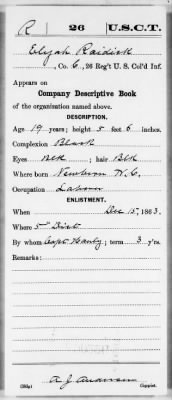 R 26 U.S.C.T.
Elijah Raidick
, Co. C, 26 Reg't U. S. Col'd Inf.
Appears on
Company Descriptive Book
of the organization named above.
DESCRIPTION.
Age 19 years; height 5 feet 6 inches.
Complexion Black
Eyes Blk ; hair Blk
Where born Newbern N.C.
Occupation Laborer
ENLISTMENT.
When Dec 15, 1863.
Where 5" Dist
By whom Capt. Manly; term 3 y'rs.
Remarks:
A J Anderson
Copyist.